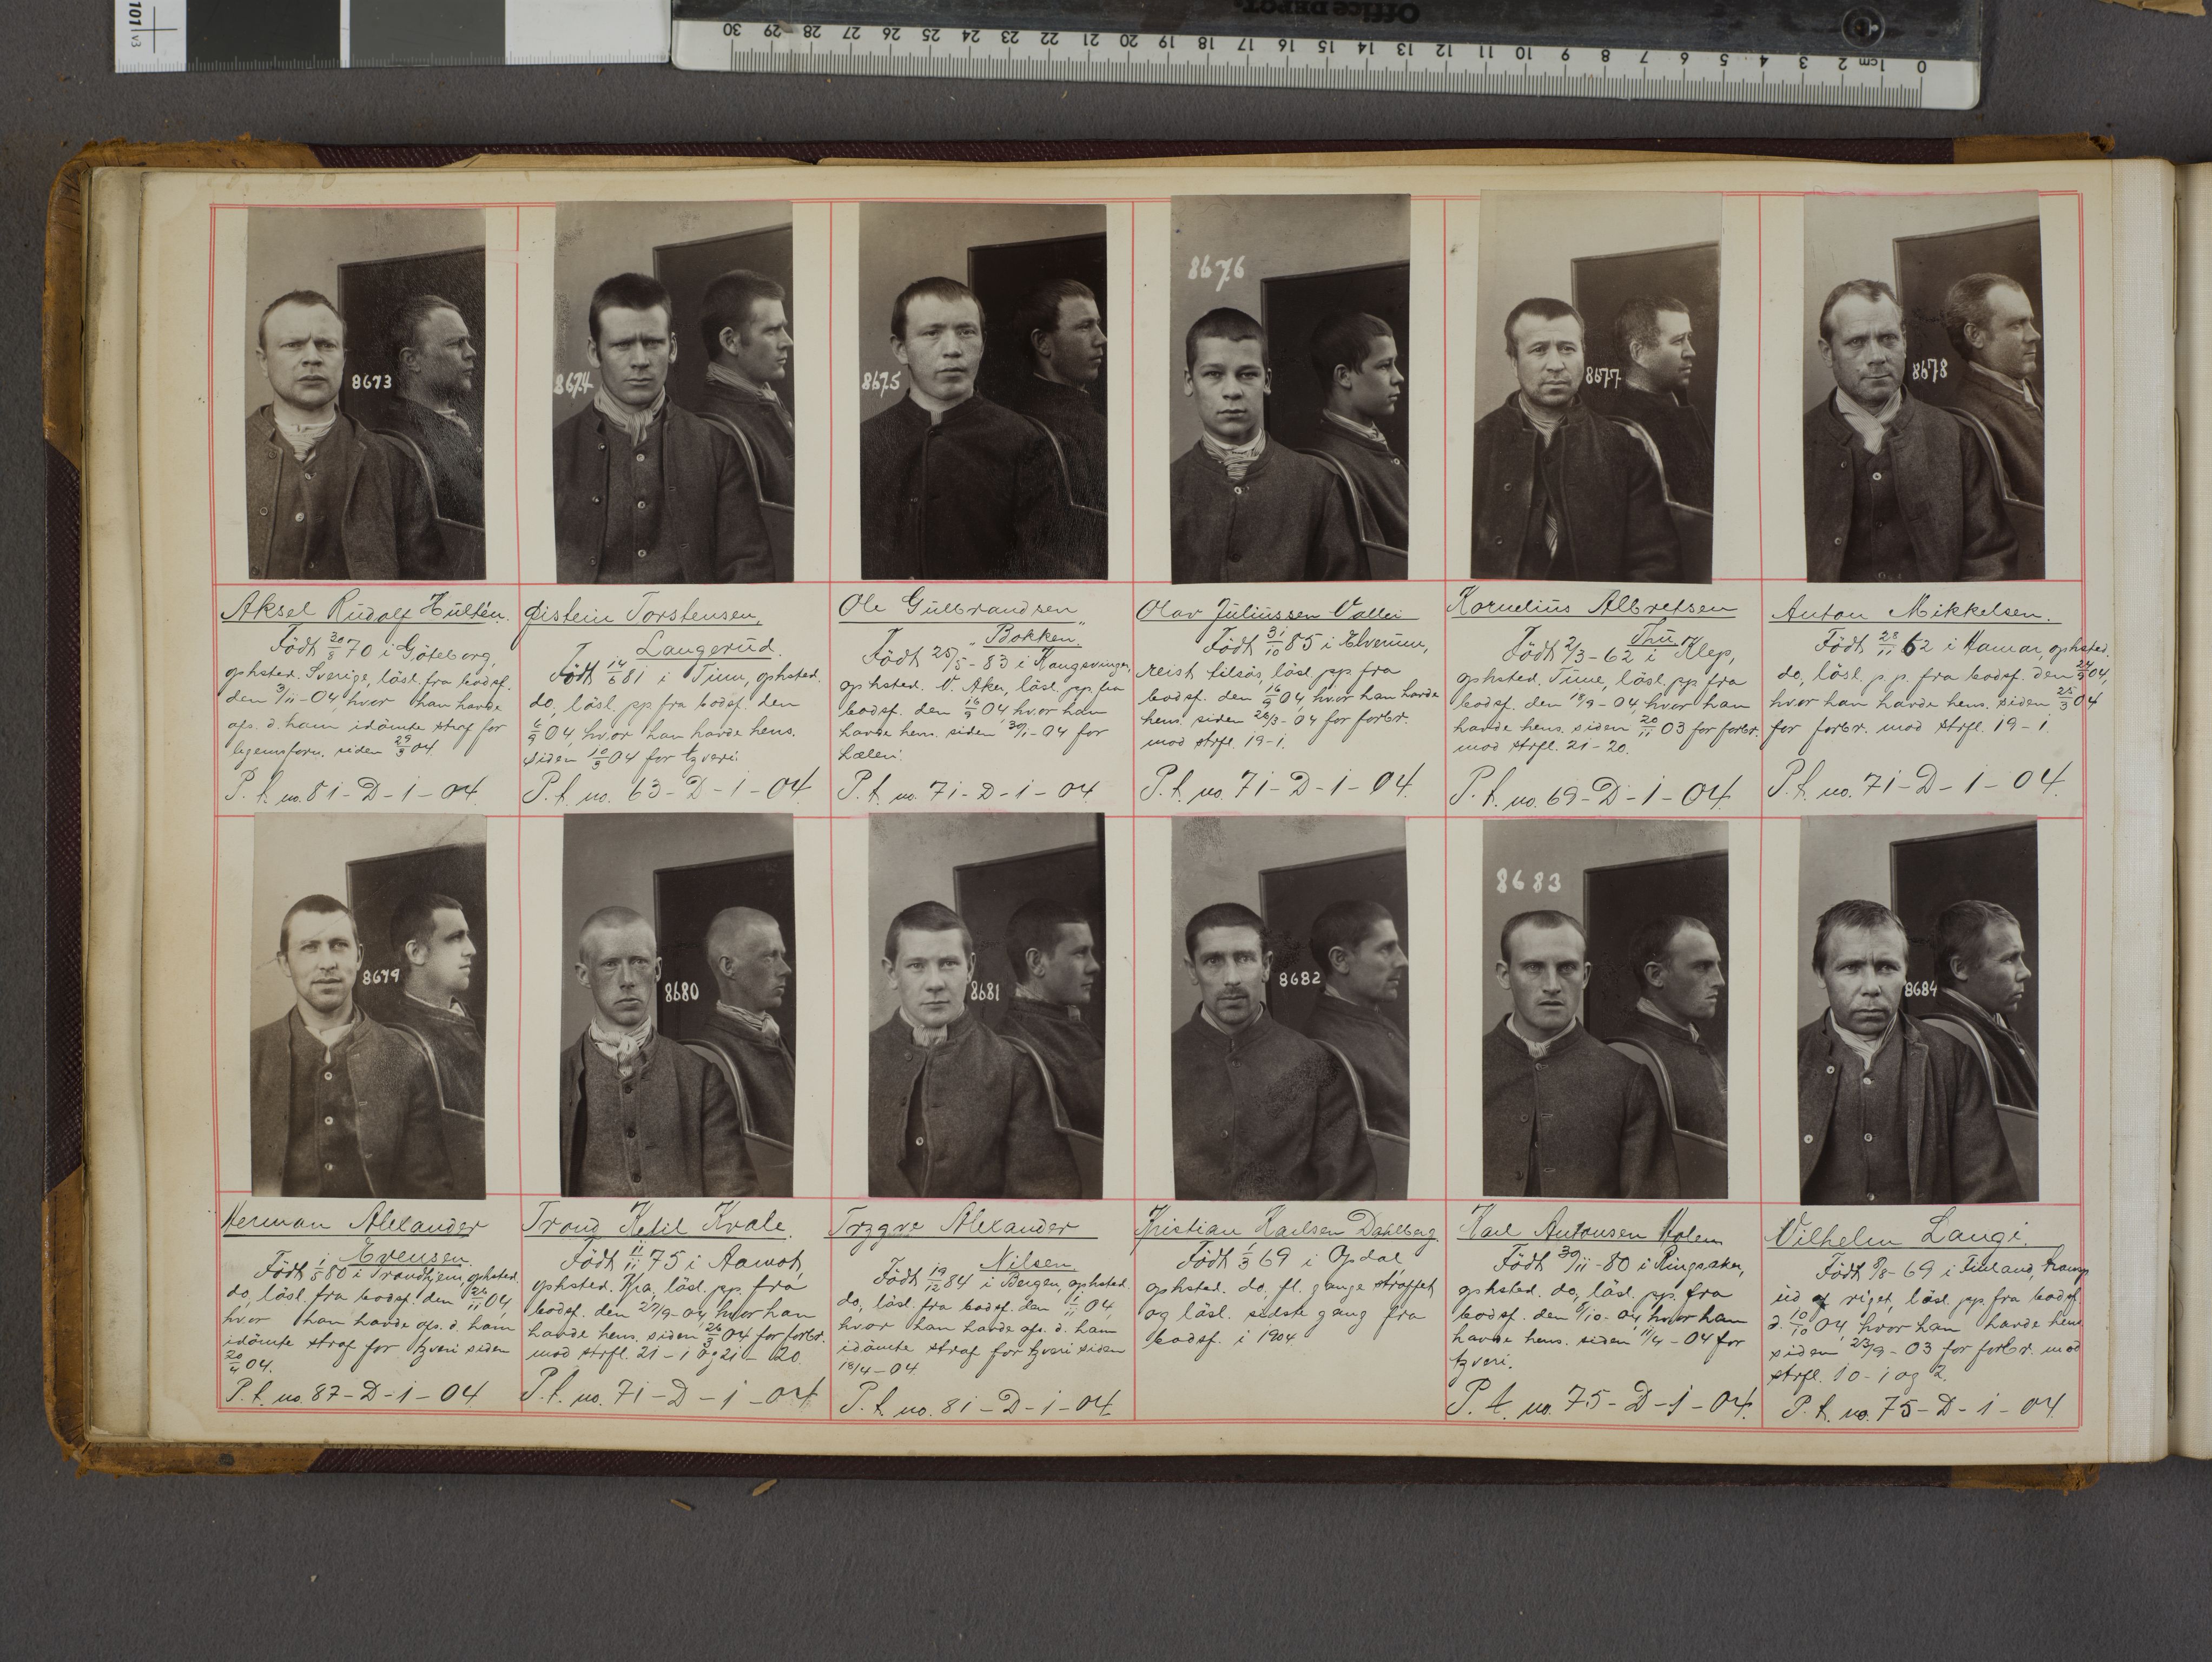 Office DEPOT.
101 v3
0 1cm 2 3 4 5 6 7 8 9 10 11 12 13 14 15 16 17 18 19 20 21 22 23 24 25 26 27 28 29 30
8673
8674
8675
8676
8677
8678
Aksel Rudolf Hultén.
Født 20/8 70 i Göteborg,
ophsted. Sverige, løsl. fra bodsf.
den 3/11-04, hvor han havde
afs. d. ham idömte straf for
legemsforn. siden 29/3 04.
P. t. no. 81-D-1-04.
Øistein Torstensen
Langerud.
Født 14/6 81 i Tinn, ophsted.
do, løsl. pp. fra bodsf. den
6/9 04, hvor han havde hens.
siden 10/3 04 for tyveri.
P. t. no. 63-D-1-04.
Ole Gulbrandsen
"Bokken"
Født 25/5-83 i Kongsvinger,
ophsted. V. Aker, løsl. pp. fra
bodsf. den 16/9 04, hvor han
havde hens. siden 30/1-04 for
hæleri.
P. t. no. 71-D-1-04.
Olav Juliussen Vallei
Født 31/10 85 i Elverum,
reist tilsös, løsl. pp. fra
bodsf. den 16/9 04, hvor han havde
hens. siden 28/3-04 for forbr.
mod strfl. 19-1.
P. t. no. 71-D-1-04.
Kornelius Albretsen
Thu.
Født 2/3-62 i Klep,
ophsted. Time, løsl. pp. fra
bodsf. den 18/9-04, hvor han
havde hens. siden 20/11 03 for forbr.
mod strfl. 21-20.
P. t. no. 69-D-1-04.
Anton Mikkelsen.
Født 28/11 62 i Hamar, ophsted.
do, løsl. p. p. fra bodsf. den 24/9 04,
hvor han havde hens. siden 25/3 04
for forbr. mod strfl. 19-1.
P. t. no. 71-D-1-04.
8679
8680
8681
8682
8683
8684
Herman Alexander
Evensen.
Født 1/5 80 i Trondhjem, ophsted.
do, løsl. fra bodsf. den 26/11 04,
hvor han havde afs. d. ham
idömte straf for tyveri siden
20/4 04.
P. t. no. 87-D-1-04
Trond Ketil Kvale.
Født 11/11 75 i Aamot,
ophsted. Kra, løsl. pp. fra
bodsf. den 27/9-04, hvor han
havde hens. siden 26/3 04 for forbr.
mod strfl. 21-1 og 21-20.
P. t. no. 71-D-1-04.
Trygve Alexander
Nilsen.
Født 19/12 84 i Bergen, ophsted.
do, løsl. fra bodsf. den 1/11 04,
hvor han havde afs. d. ham
idömte straf for tyveri siden
18/4-04.
P. t. no. 81-D-1-04.
Kristian Karlsen Dahlberg.
Født 1/3 69 i Opdal,
ophsted. do, fl. gange straffet
og løsl. sidste gang fra
bodsf. i 1904.
Karl Antonsen Holem
Født 30/11-80 i Ringsaker,
ophsted. do, løsl. pp. fra
bodsf. den 9/10-04, hvor han
havde hens. siden 11/4-04 for
tyveri.
P. t. no. 75-D-1-04.
Vilhelm Langi.
Født 9/8-69 i Finland,
ud af riget, løsl. pp. fra bodsf.
d. 10/10 04, hvor han havde hens.
siden 23/9-03 for forbr. mod
strfl. 10-1 og 2.
P. t. no. 75-D-1-04.